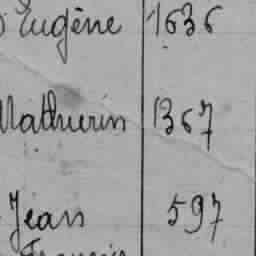 Eugène 1636
Mathurin 1367
Jean 597
François